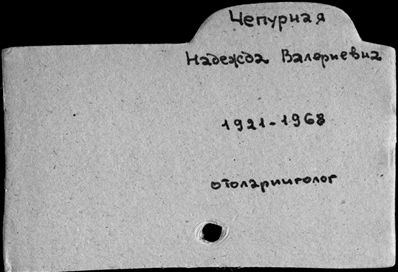 Чепурная
Надежда Валериевна
1921-1968
отоларинголог